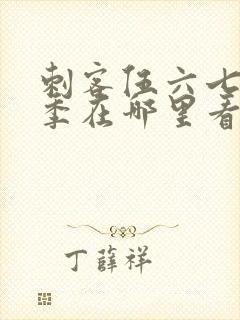 刺客伍六七
季在哪里看
丁薛祥